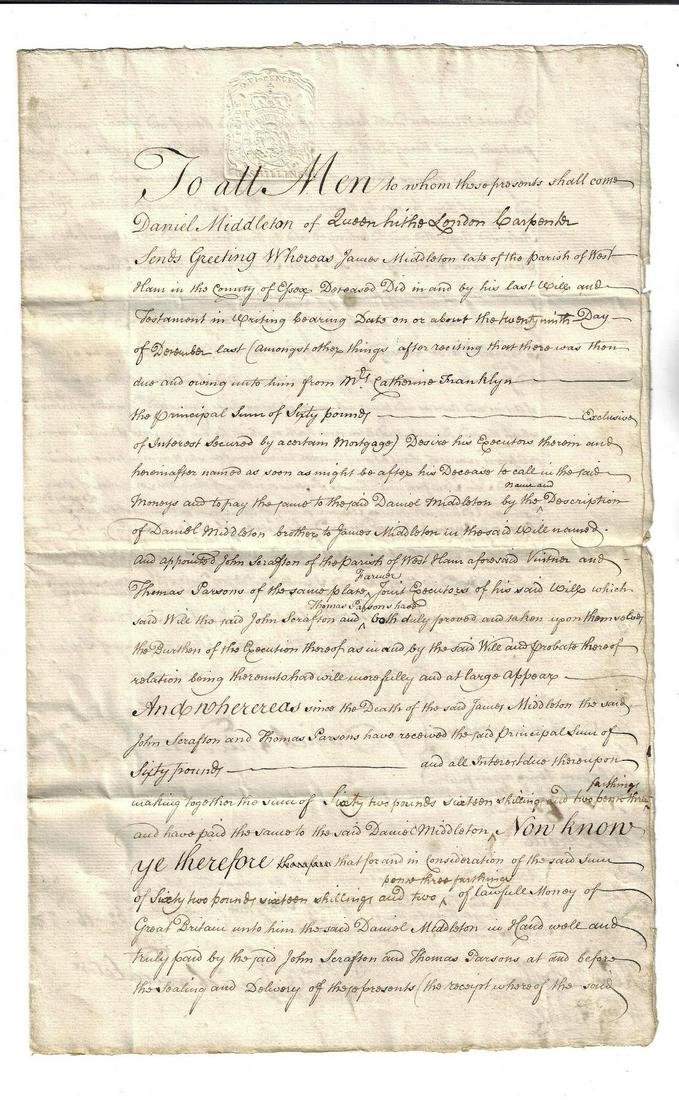 To all Men to whom these presents shall come
Daniel Middleton of Queenhithe London Carpenter
Sends Greeting Whereas James Middleton late of the Parish of West
Ham in the County of Essex Deceased Did in and by his last Will and
Testament in Writing bearing Date on or about the twenty ninth Day
of December last (Amongst other things after reciting that there was then
due and owing unto him from Mrs Catherine Franklyn
the Principal Sum of Sixty pounds Exclusive
of Interest Secured by a certain Mortgage) Desire his Executors therein and
hereinafter named as soon as might be after his Decease to call in the said
name and
Moneys and to pay the same to the said Daniel Middleton by the ^ Description
of Daniel Middleton brother to James Middleton in the said Will named.
And appointed John Scrafton of the Parish of West Ham aforesaid Vintner and
Farmer
Thomas Parsons of the same place ^ Joint Executors of his said Will which
Thomas Parsons have
said Will the said John Scrafton and ^ both duly proved and taken upon themselves
the Burthen of the Execution thereof as in and by the said Will and Probate thereof
relation being thereunto had will more fully and at large Appear
And wherereas since the Death of the said James Middleton the said
John Scrafton and Thomas Parsons have received the said Principal Sum of
Sixty pounds and all Interest due thereupon
farthings
making together the sum of Sixty two pounds sixteen shillings and two pence three ^
and have paid the same to the said Daniel Middleton ^ Now know
ye therefore that for and in Consideration of the said sum
pence three farthings
of Sixty two pounds sixteen shillings and two ^ of lawfull Money of
Great Britain unto him the said Daniel Middleton in Hand well and
truly paid by the said John Scrafton and Thomas Parsons at and before
the Sealing and Delivery of these presents (the receipt whereof the said